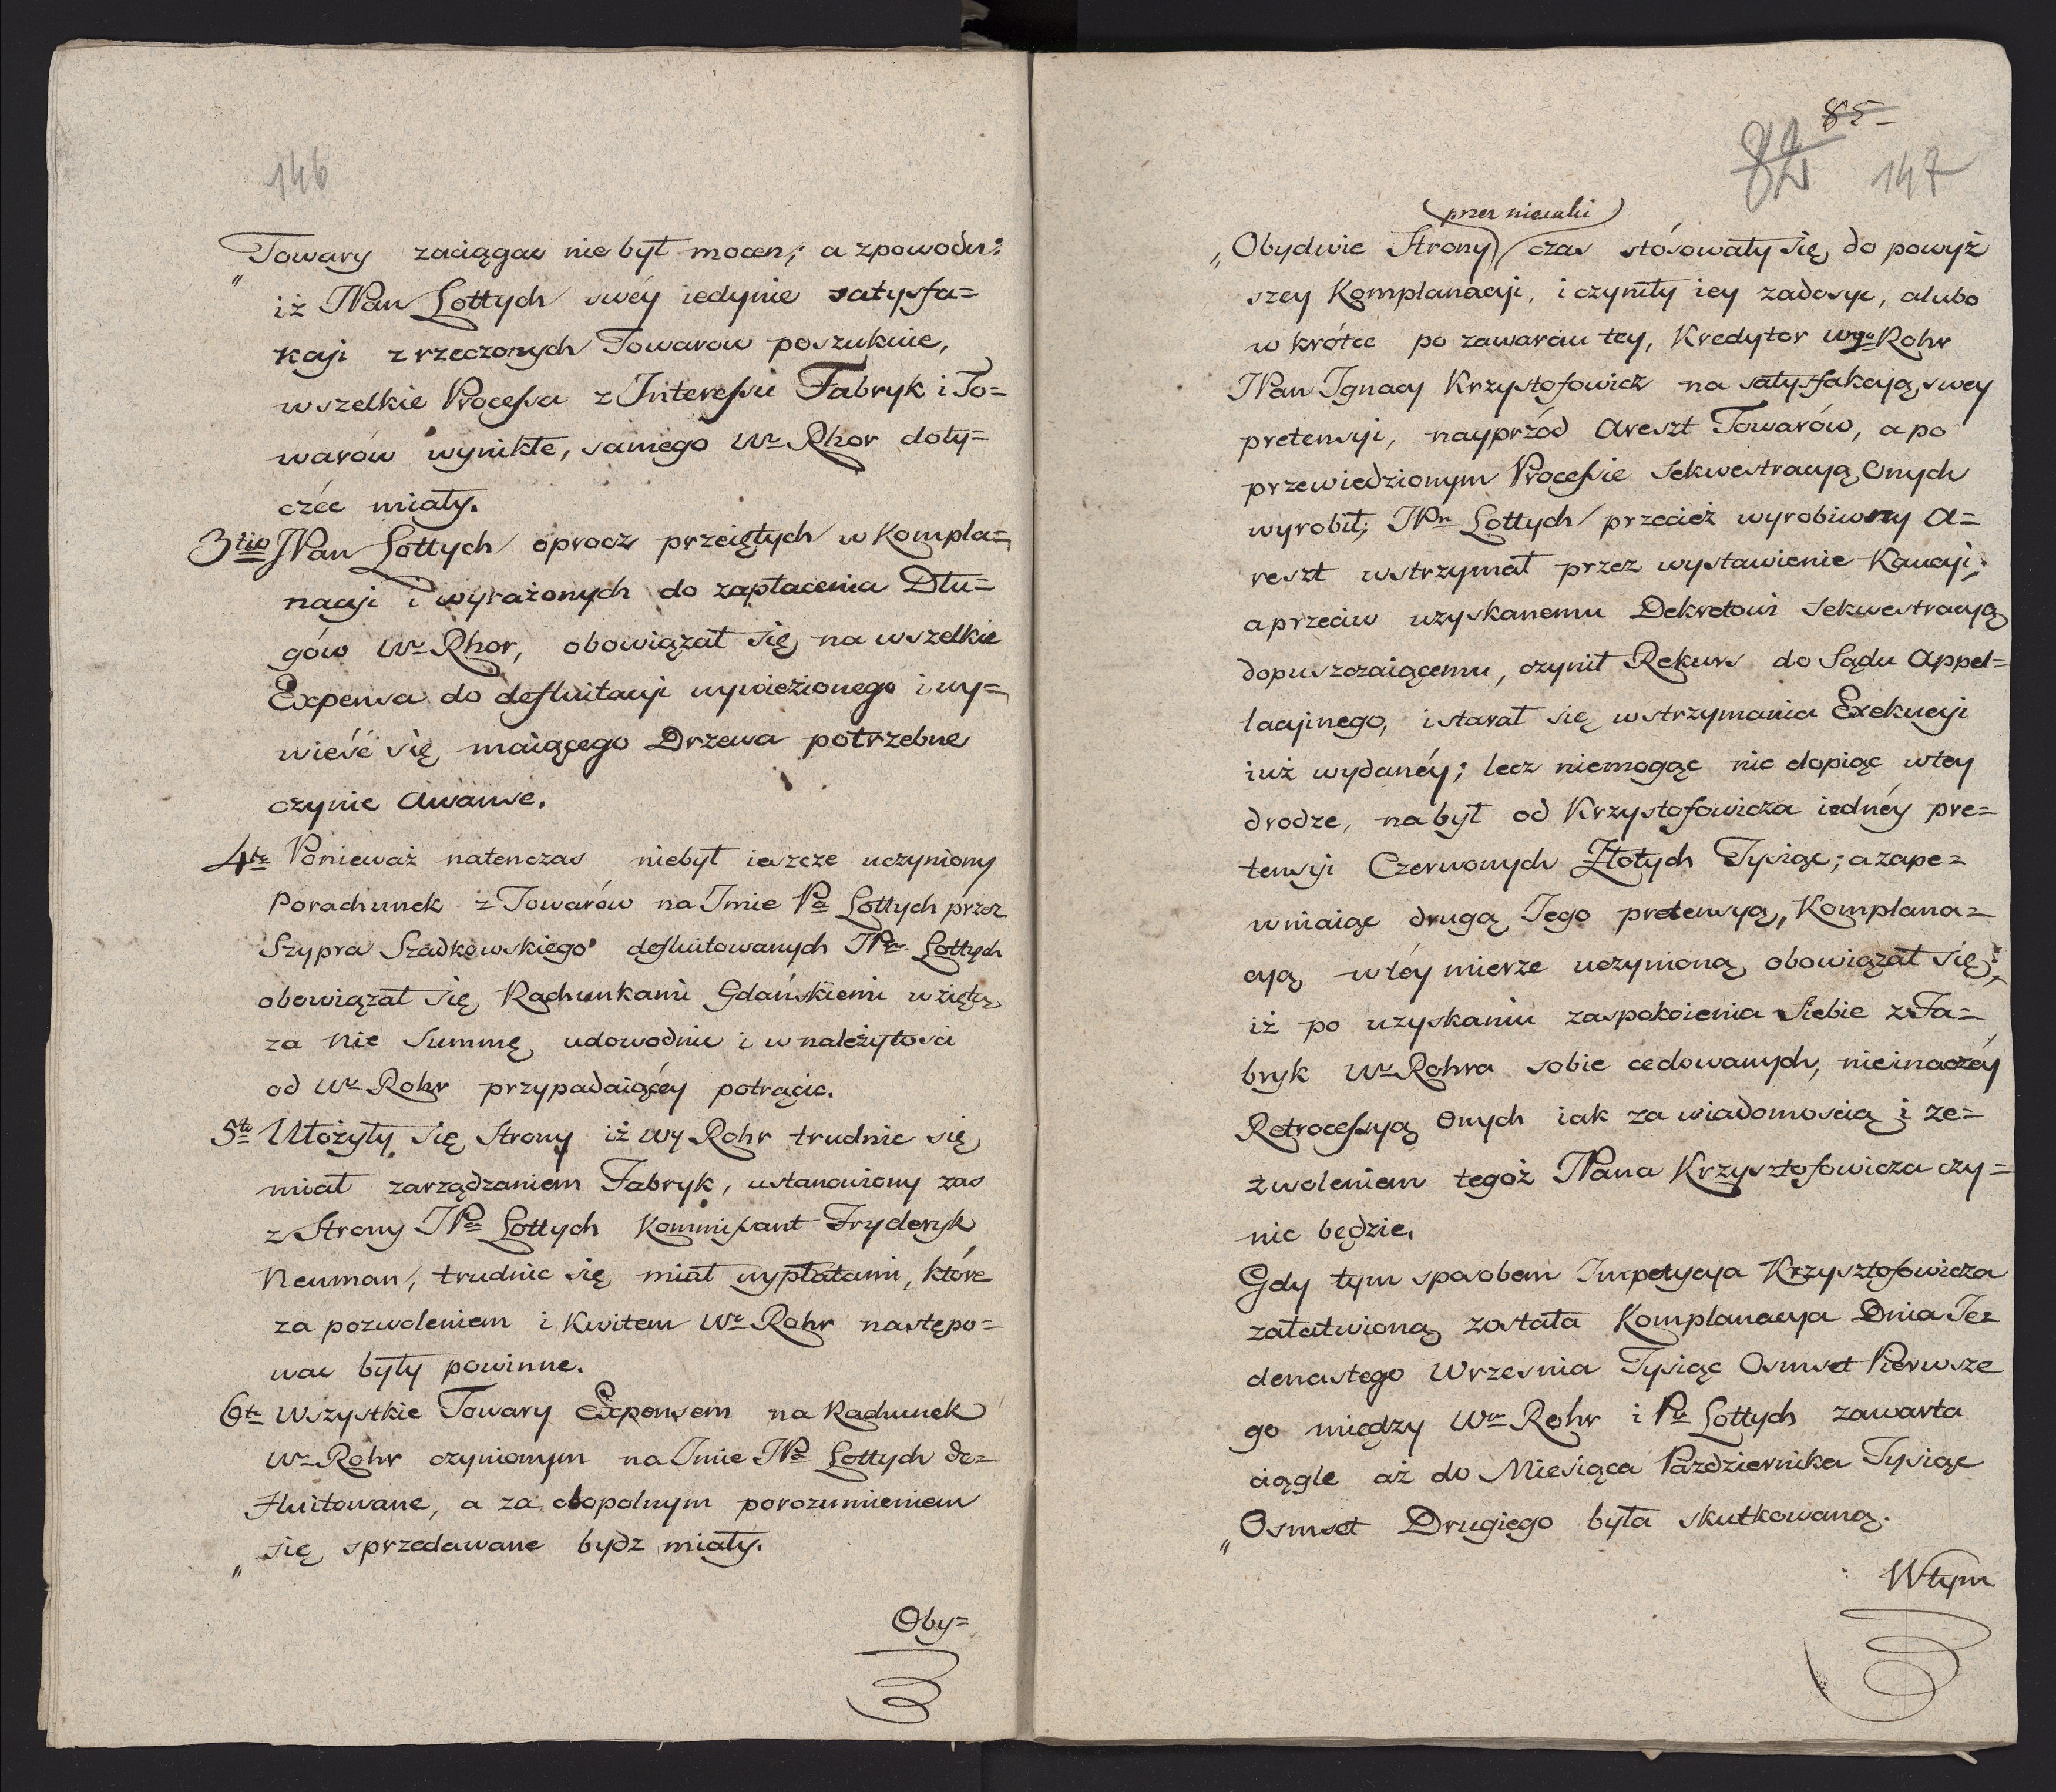 146
„Towary zaciągać nie był mocen; a zpowodu:
iż JPan Lottych swéy iedynie satysfa=
kcji z rzeczonych Towarow poszukuie,
wszelkie Processa z Interessu Fabryk i To=
warów wynikłe, samego Wo Rhor doty=
czéc miały.
3tio JPan Lottych oprocz przeiętych w Kompla=
nacji i wyrażonych do zapłacenia Dłu=
gów Wo Rhor, obowiązał się na wszelkie
Expensa do defluitacji wywiezionego i wy=
wieść się maiącego Drzewa potrzebne
czynic Awanse.
4to Ponieważ natenczas niebył ieszcze uczyniony
Porachunek z Towarów na Imie Pa Lottych przez
Szypra Szadkowskiego defluitowanych JPn Lottych
obowiązał się Rachunkami Gdańskiemi wziętą
za nie Summę udowodnić i w należytosci
od Wo Rohr przypadaiącéy potrącic.
5to Ułożyły się Strony iż Wy Rohr trudnic się
miał zarządzaniem Fabryk, ustanowiony zas
z Strony JPa Lottych Kommissant Fryderyk
Neuman, trudnic się miał wypłatami, które
za pozwoleniem i Kwitem Wo Rohr następo=
wac były powinne.
6to Wszystkie Towary Expensem na Rachunek
Wo Rohr czynionym na Imie JPa Lottych de=
fluitowane, a za obopolnym porozumieniem
„się sprzedawane bydz miały.
Oby=
85
82 147
(przez nieiaki)
„Obydwie Strony czas stósowały się do powyż
szey Komplanacji, i czyniły iey zadosyc, alubo
w krótce po zawarciu tey, Kredytor Wgo Rohr
JPan Ignacy Krzystofowicz na satysfakcyą swey
pretensyi, nayprzód Areszt Towarów, a po
przewiedzionym Processie Sekwestracyą onych
wyrobił; JPn Lottych przecież wyrobiwszy A=
reszt wstrzymał przez wystawienie Kaucyi;
a przeciw uzyskanemu Dekretowi Sekwestracyą
dopuszczaiącemu, czynił Rekurs do Sądu Appel=
lacjinego, i starał się wstrzymania Exekucyi
iuż wydanéy; lecz niemogąc nic dopiąc wtey
drodze, nabył od Krzystofowicza iednéy pre=
tensyi Czerwonych Złotych Tysiąc; a zape=
wniaiąc drugą Iego pretensyą, Komplana=
cyą wtéy mierze uczynioną obowiązał się:
iż po uzyskaniu zaspokoienia Siebie z Fa=
bryk Wo Rohra sobie cedowanych, nieinaczéy
Retrocessyą onych iak za wiadomoscią i ze=
zwoleniem tegoż JPana Krzysztofowicza czy=
nic będzie.
Gdy tym sposobem Impetycya Krzysztofowicza
załatwioną została Komplanacya Dnia Ie=
denastego Wrzesnia Tysiąc Osmset Pierwsze
go między Wm Rohr i Pn Lottych zawarta
ciągle aż do Miesiąca Pazdziernika Tysiąc
„Osmset Drugiego była skutkowaną.
Wtym